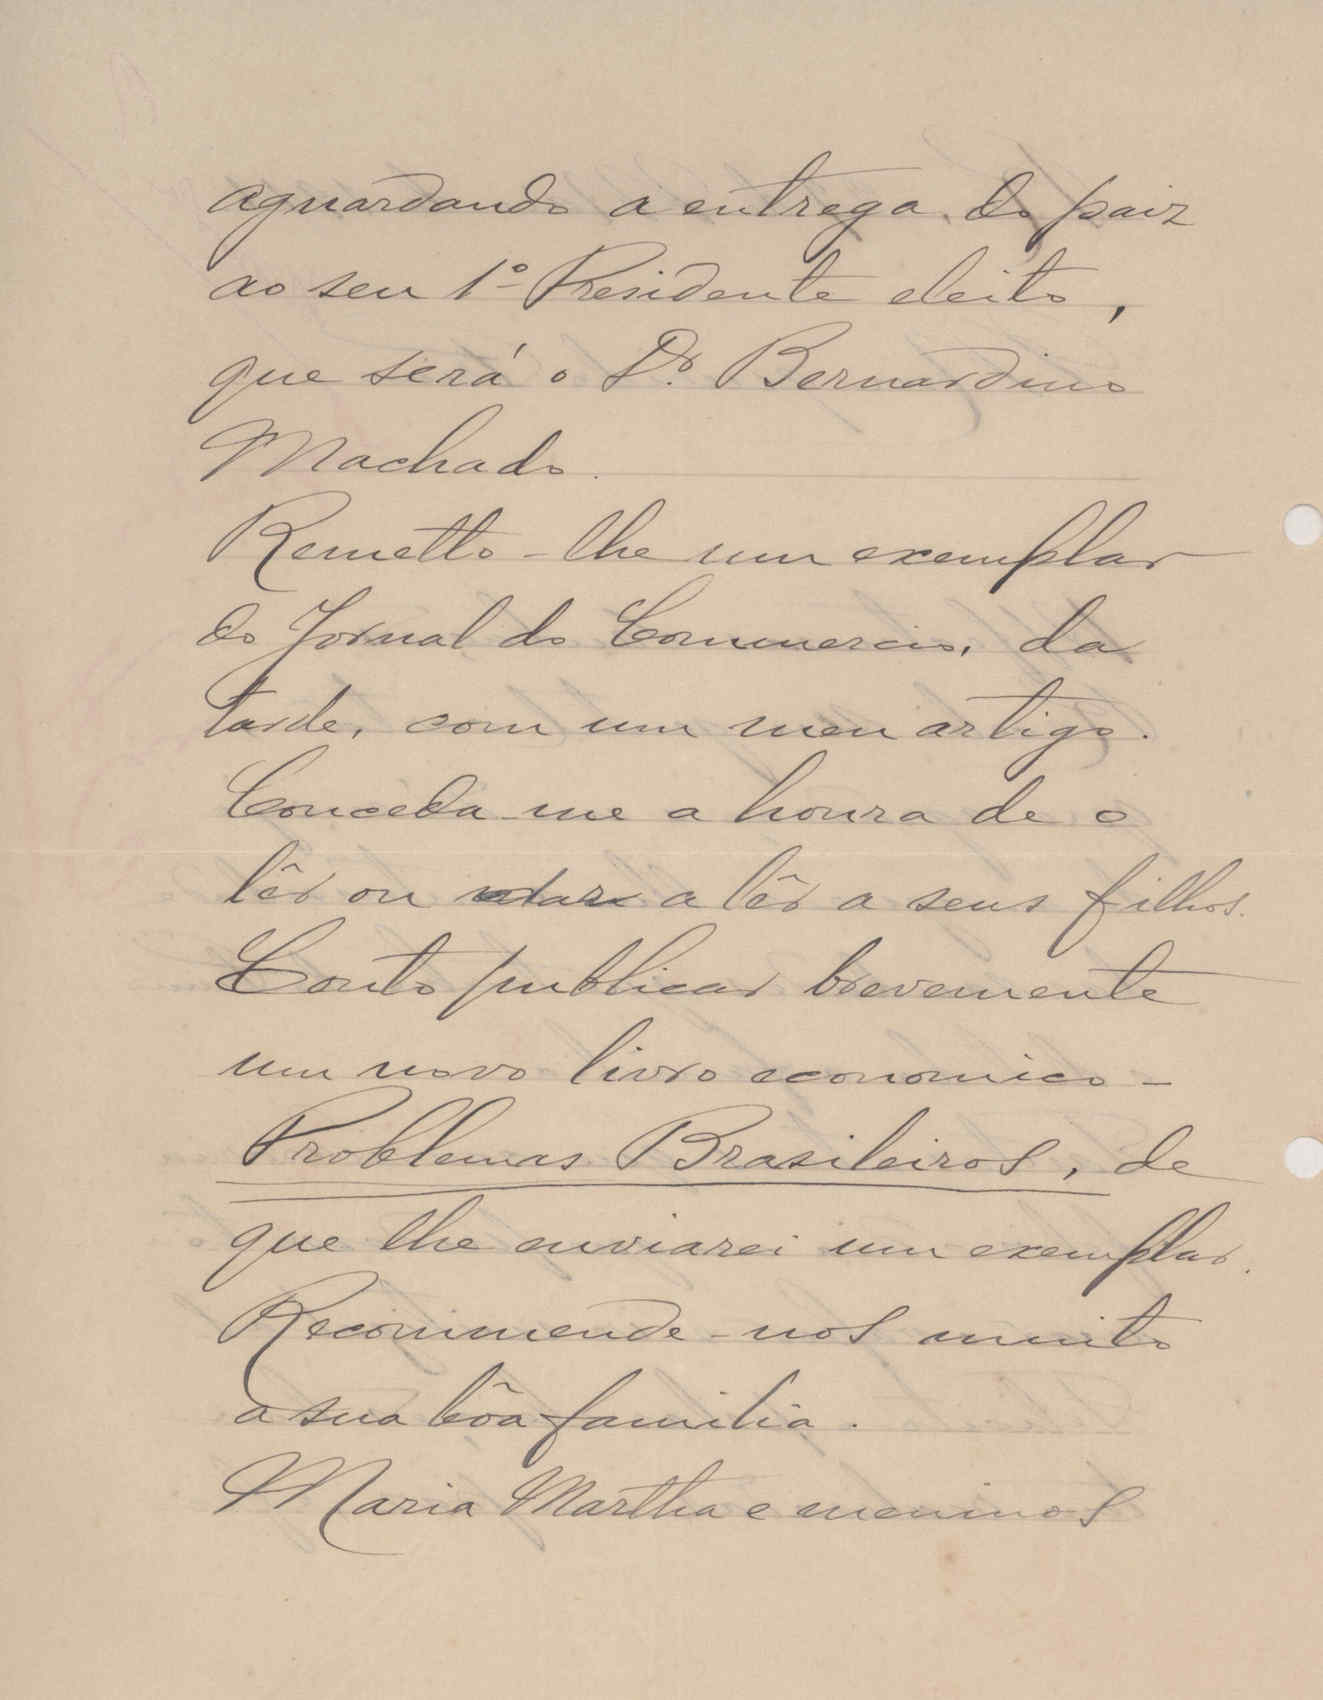 aguardando a entrega do paiz
ao seu 1º Presidente eleito,
que será o Dr. Bernardino
Machado.
Remetto-lhe um exemplar
do Jornal do Commercio, da
tarde, com um meu artigo.
Conceda-me a honra de o
lêr ou dar a lêr a seus filhos.
Conto publicar brevemente
um novo livro economico -
Problemas Brasileiros, de
que lhe enviarei um exemplar.
Recommende-nos muito
a sua bôa familia.
Maria Martha e meninos